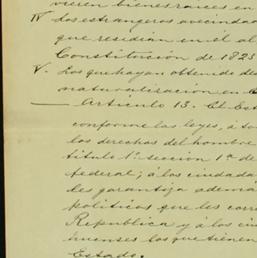 vieren bienes raices en
IV Los estrangeros avecindad
que residian en él al
Constitucion de 1825
V. Los que hayan obtenido de
naturalizacion en
Artículo 13. El Est
conforme las leyes, a to
los derechos del hombre
título 1º seccion 1ª de
federal; á los ciudada
les garantiza ademá
políticos que les corre
Republica y á los c
huenses los que tienen
Estado.